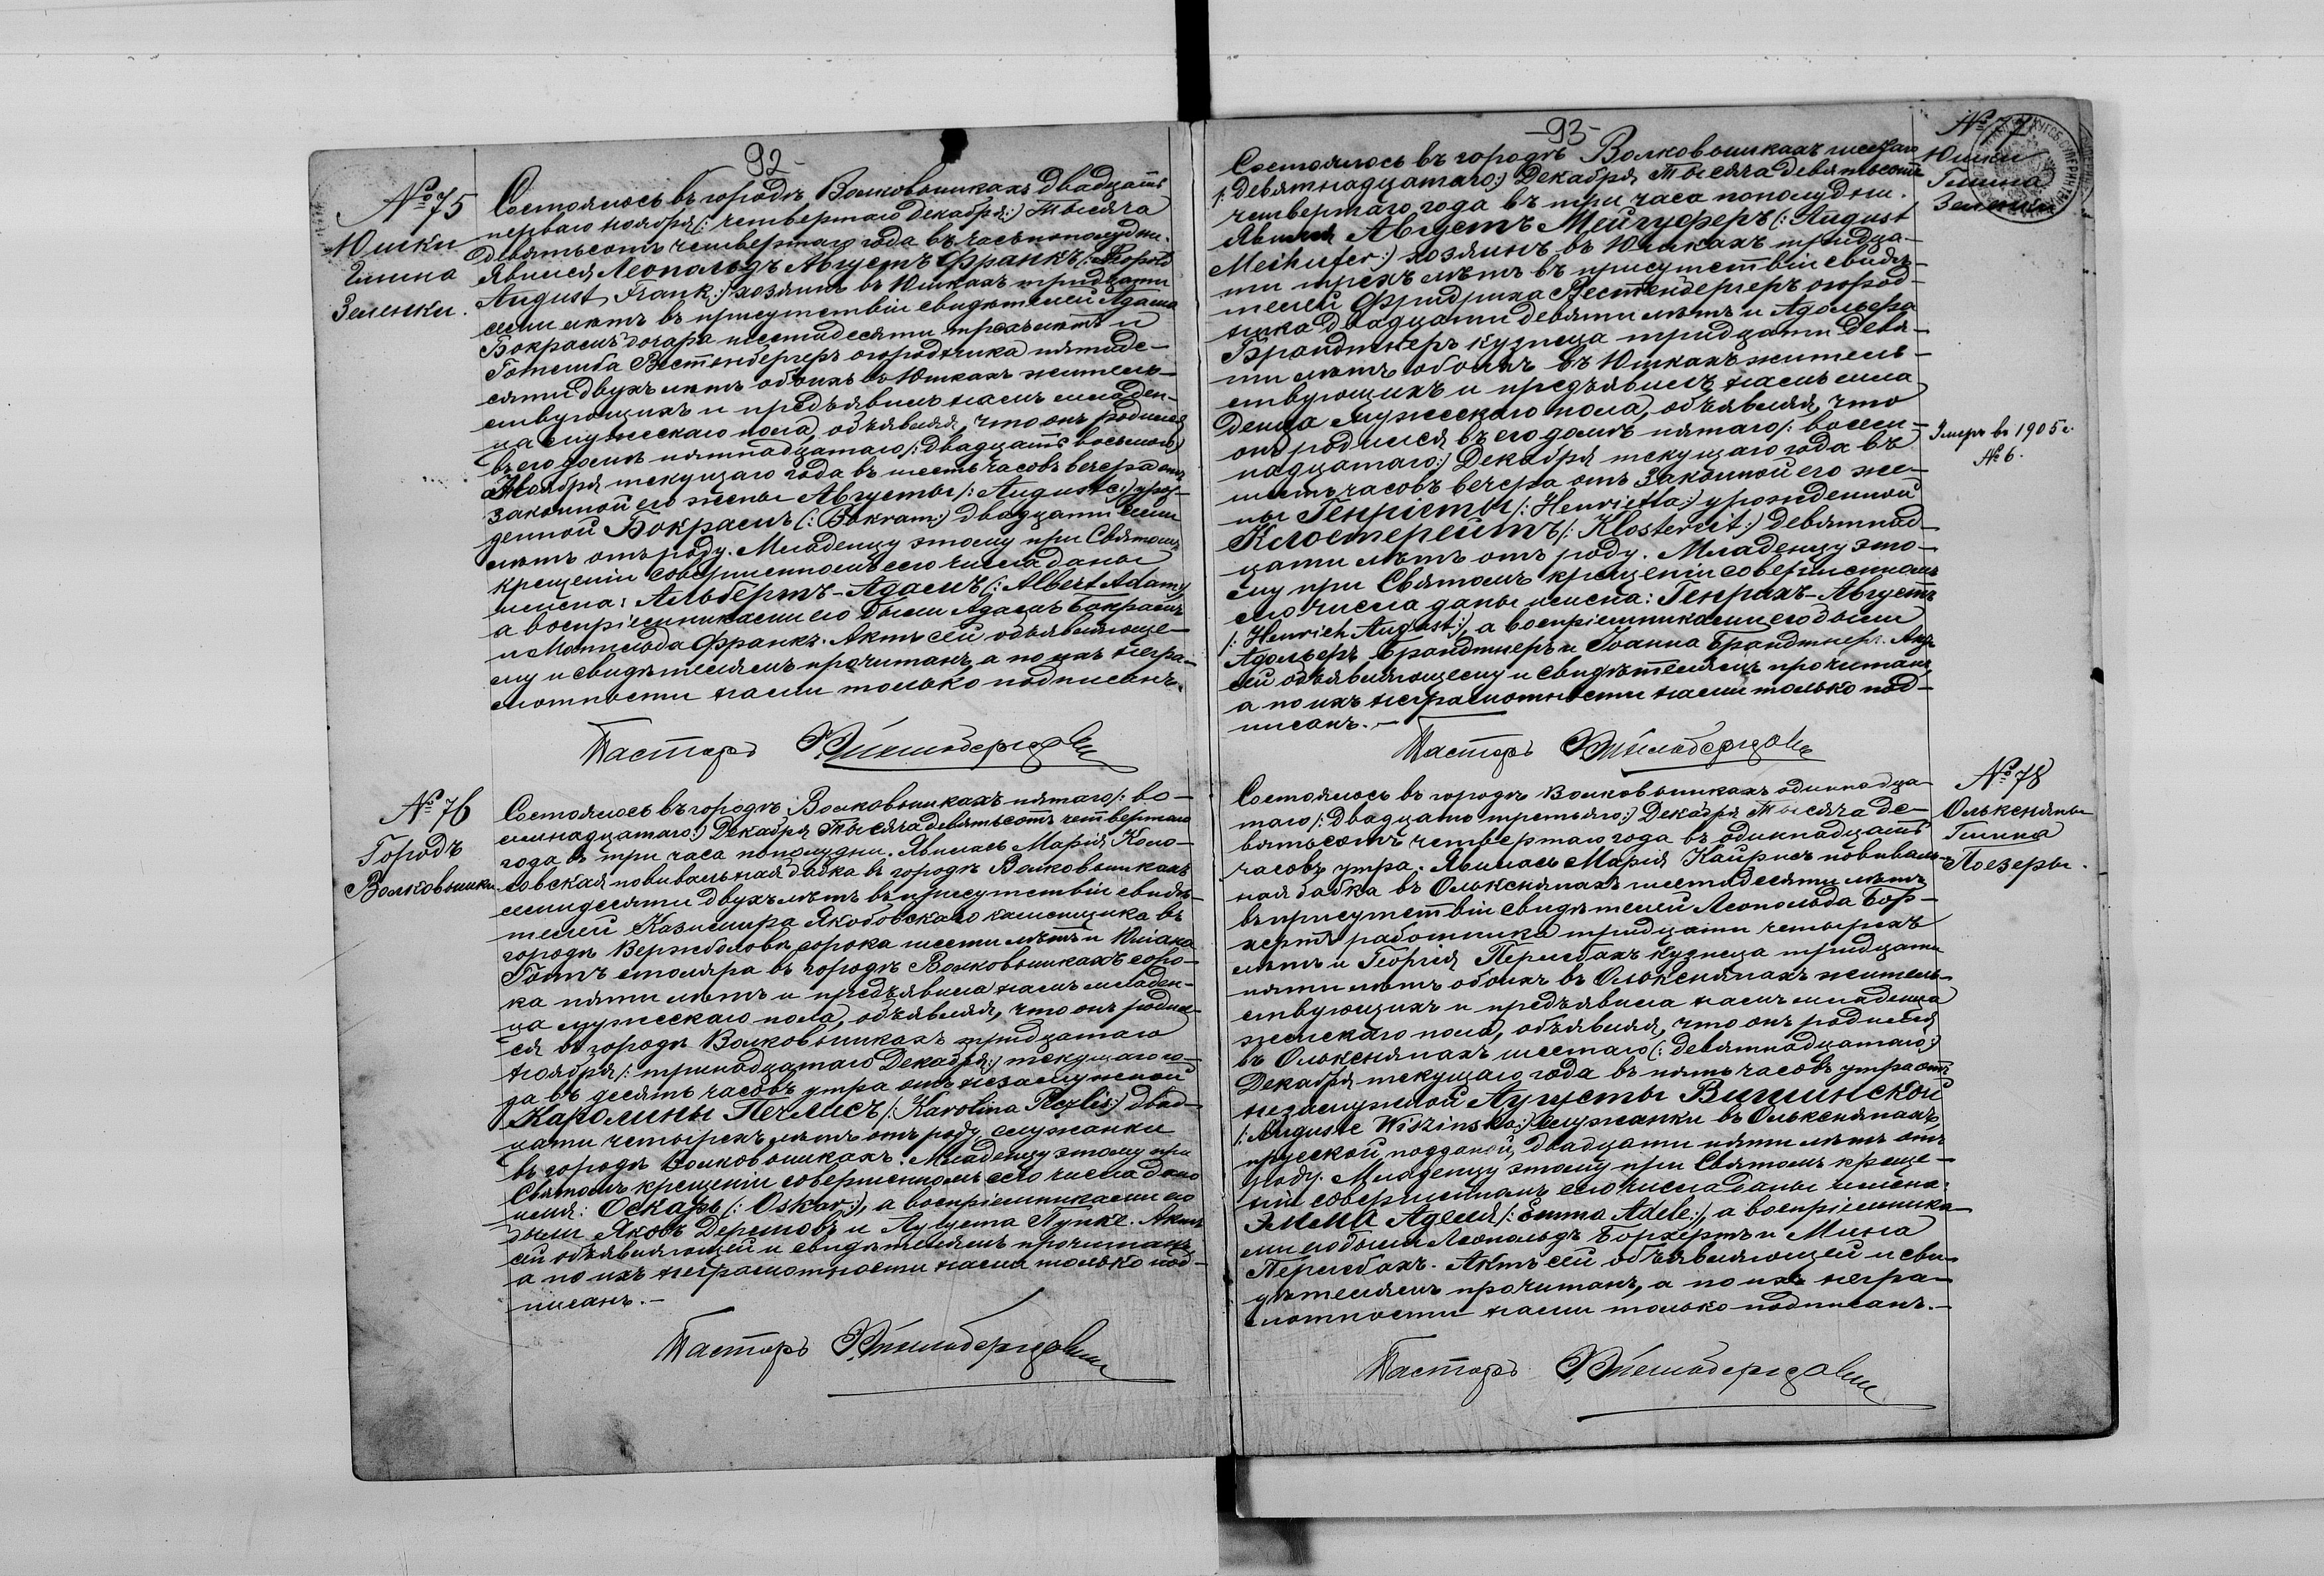 92-
№ 75
Юшки
Гмина
Зеленки.
Состоялось въ городѣ Волковышкахъ двадцать
перваго ноября /: четвертаго декабря :/ тысяча
девятьсотъ четвертаго года въ часъ пополудни.
Явился Леопольдъ Августъ Франкъ /: Leopold
August Frank :/ хозяинъ въ Юшкахъ тридцати
семи лѣтъ въ присутствіи свидѣтелей Адама
Бокрамъ шестидесяти трехъ лѣтъ и
Готлиба Вестенбергеръ огородника пятиде-
сяти двухъ лѣтъ обоихъ въ Юшкахъ житель-
ствующихъ и предъявилъ намъ младен-
ца мужескаго пола, объявляя, что онъ родился
въ его домѣ пятнадцатаго /: двадцать восьмого :/
Ноября текущаго года въ шесть часовъ вечера отъ
законной его жены Августы /: Auguste :/ урож-
денной Бокрамъ /: Bokram :/ двадцати семи
лѣтъ отъ роду. Младенцу этому при Святомъ
крещеніи совершенномъ сего числа даны
имена: Альбертъ-Адамъ /: Albert Adam :/
а воспріемниками его были Адамъ Бокрамъ
и Матильда Франкъ. Актъ сей объявляюще-
му и свидѣтелямъ прочитанъ, а по ихъ негра-
мотности нами только подписанъ.
Пасторъ
№ 76
Городъ
Волковышки
Состоялось въ городѣ Волковышкахъ пятаго /: во-
семнадцатаго :/ Декабря тысяча девятьсотъ четвертаго
года въ три часа пополудни. Явилась Марія Коло-
совская повивальная бабка въ городѣ Волковышкахъ
семидесяти двухъ лѣтъ въ присутствіи свидѣ-
телей Казимира Якобовскаго каменщика въ
городѣ Вержболовѣ сорока шести лѣтъ и Юліана
Готъ столяра въ городѣ Волковышкахъ соро-
ка пяти лѣтъ и предъявила намъ младен-
ца мужескаго пола, объявляя, что онъ родил-
ся въ городѣ Волковышкахъ тридцатаго
ноября /: тринадцатаго Декабря :/ текущаго го-
да въ десять часовъ утра отъ незамужной
Каролины Печлисъ /: Karolina Peczlis :/ двад-
цати четырехъ лѣтъ отъ роду, служанки
въ городѣ Волковышкахъ. Младенцу этому при
Святомъ крещеніи совершенномъ сего числа дано
имя: Оскаръ /: Oskar :/, а воспріемниками его
были Яковъ и Августа Пупке. Актъ
сей объявляющей и свидѣтелямъ прочитанъ,
а по ихъ неграмотности нами только под-
писанъ.-
Пасторъ
-93-
№ 77
Юшки
Гмина
Зеленки
Состоялось въ городѣ Волковышкахъ шестаго
/: девятнадцатаго :/ Декабря тысяча девятьсотъ
четвертаго года въ три часа пополудни.
Явился Августъ Мейгуферъ /: August
Meihufer :/ хозяинъ въ Юшкахъ тридца-
ти трехъ лѣтъ въ присутствіи свидѣ-
телей Фридриха Вестенбергеръ огород-
ника двадцати девяти лѣтъ и Адольфа
Брандтнеръ кузнеца тридцати девя-
ти лѣтъ обоихъ въ Юшкахъ житель-
ствующихъ и предъявилъ намъ мла
денца мужескаго пола, объявляя, что
онъ родился въ его домѣ пятаго /: восем-
надцатаго :/ Декабря текущаго года въ
шесть часовъ вечера отъ законной его же-
ны Генріеты /: Henrietta :/ урожденной
Клостерейтъ /: Klostereit :/ девятнад-
цати лѣтъ отъ роду. Младенцу это-
му при Святомъ крещеніи совершенномъ
сего числа даны имена: Генрихъ-Августъ
/: Henrich August :/, а воспріемниками его были
Адольфъ Брандтнеръ и Іоанна Брандтнеръ. Актъ
сей объявляющему и свидѣтелямъ прочитанъ,
а по ихъ неграмотности нами только под-
писанъ.-
Умеръ въ 1905 г.
№ 6.
Пасторъ
№ 78
Ольксняны
Гмина
Поезеры.
Состоялось въ городѣ Волковышкахъ одиннадца-
таго /: двадцать третьяго :/ Декабря тысяча де-
вятьсотъ четвертаго года въ одиннадцать
часовъ утра. Явилась Марія Кайрисъ повиваль-
ная бабка въ Олькснянахъ шестидесяти лѣтъ
въ присутствіи свидѣтелей Леопольда Бор-
хертъ работника тридцати четырехъ
лѣтъ и Георгія Перлебахъ кузнеца тридцати
пяти лѣтъ обоихъ въ Олькснянахъ житель-
ствующихъ и предъявила намъ младенца
женскаго пола, объявляя, что онъ родился
въ Олькснянахъ шестаго /: девятнадцатаго :/
Декабря текущаго года въ пять часовъ утра отъ
незамужной Аугусты Вишинской
/: Auguste Wiszinska :/ служанки въ Олькснянахъ,
прусской подданой, двадцати пяти лѣтъ отъ
роду. Младенцу этому при Святомъ креще-
ніи совершенномъ сего числа даны имена:
Эмма Аделя /: Emma Adele :/, а воспріемника-
ми его были Леопольдъ Борхертъ и Мина
Перлебахъ. Актъ сей объявляющей и сви-
дѣтелямъ прочитанъ, а по ихъ негра-
мотности нами только подписанъ.-
Пасторъ